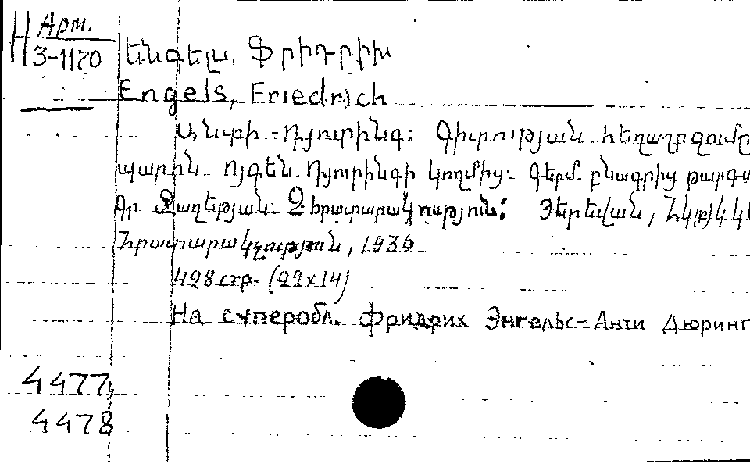 H Арм.
3-1170 Ենգելս, Ֆրիդրիխ
Engels, Friedrich
Անտի-Դյուրինգ: Գիտության հեղաշրջումը
պարոն Օյգեն Դյուրինգի կողմից: Գերմ. բնագրից թարգմ
Հրատարակություն: Յերեվան,
Հրատարակչություն, 1936
498 стр. (22x14)
На суперобл. Фридрих Энгельс-Анти Дюринг
4477
4478